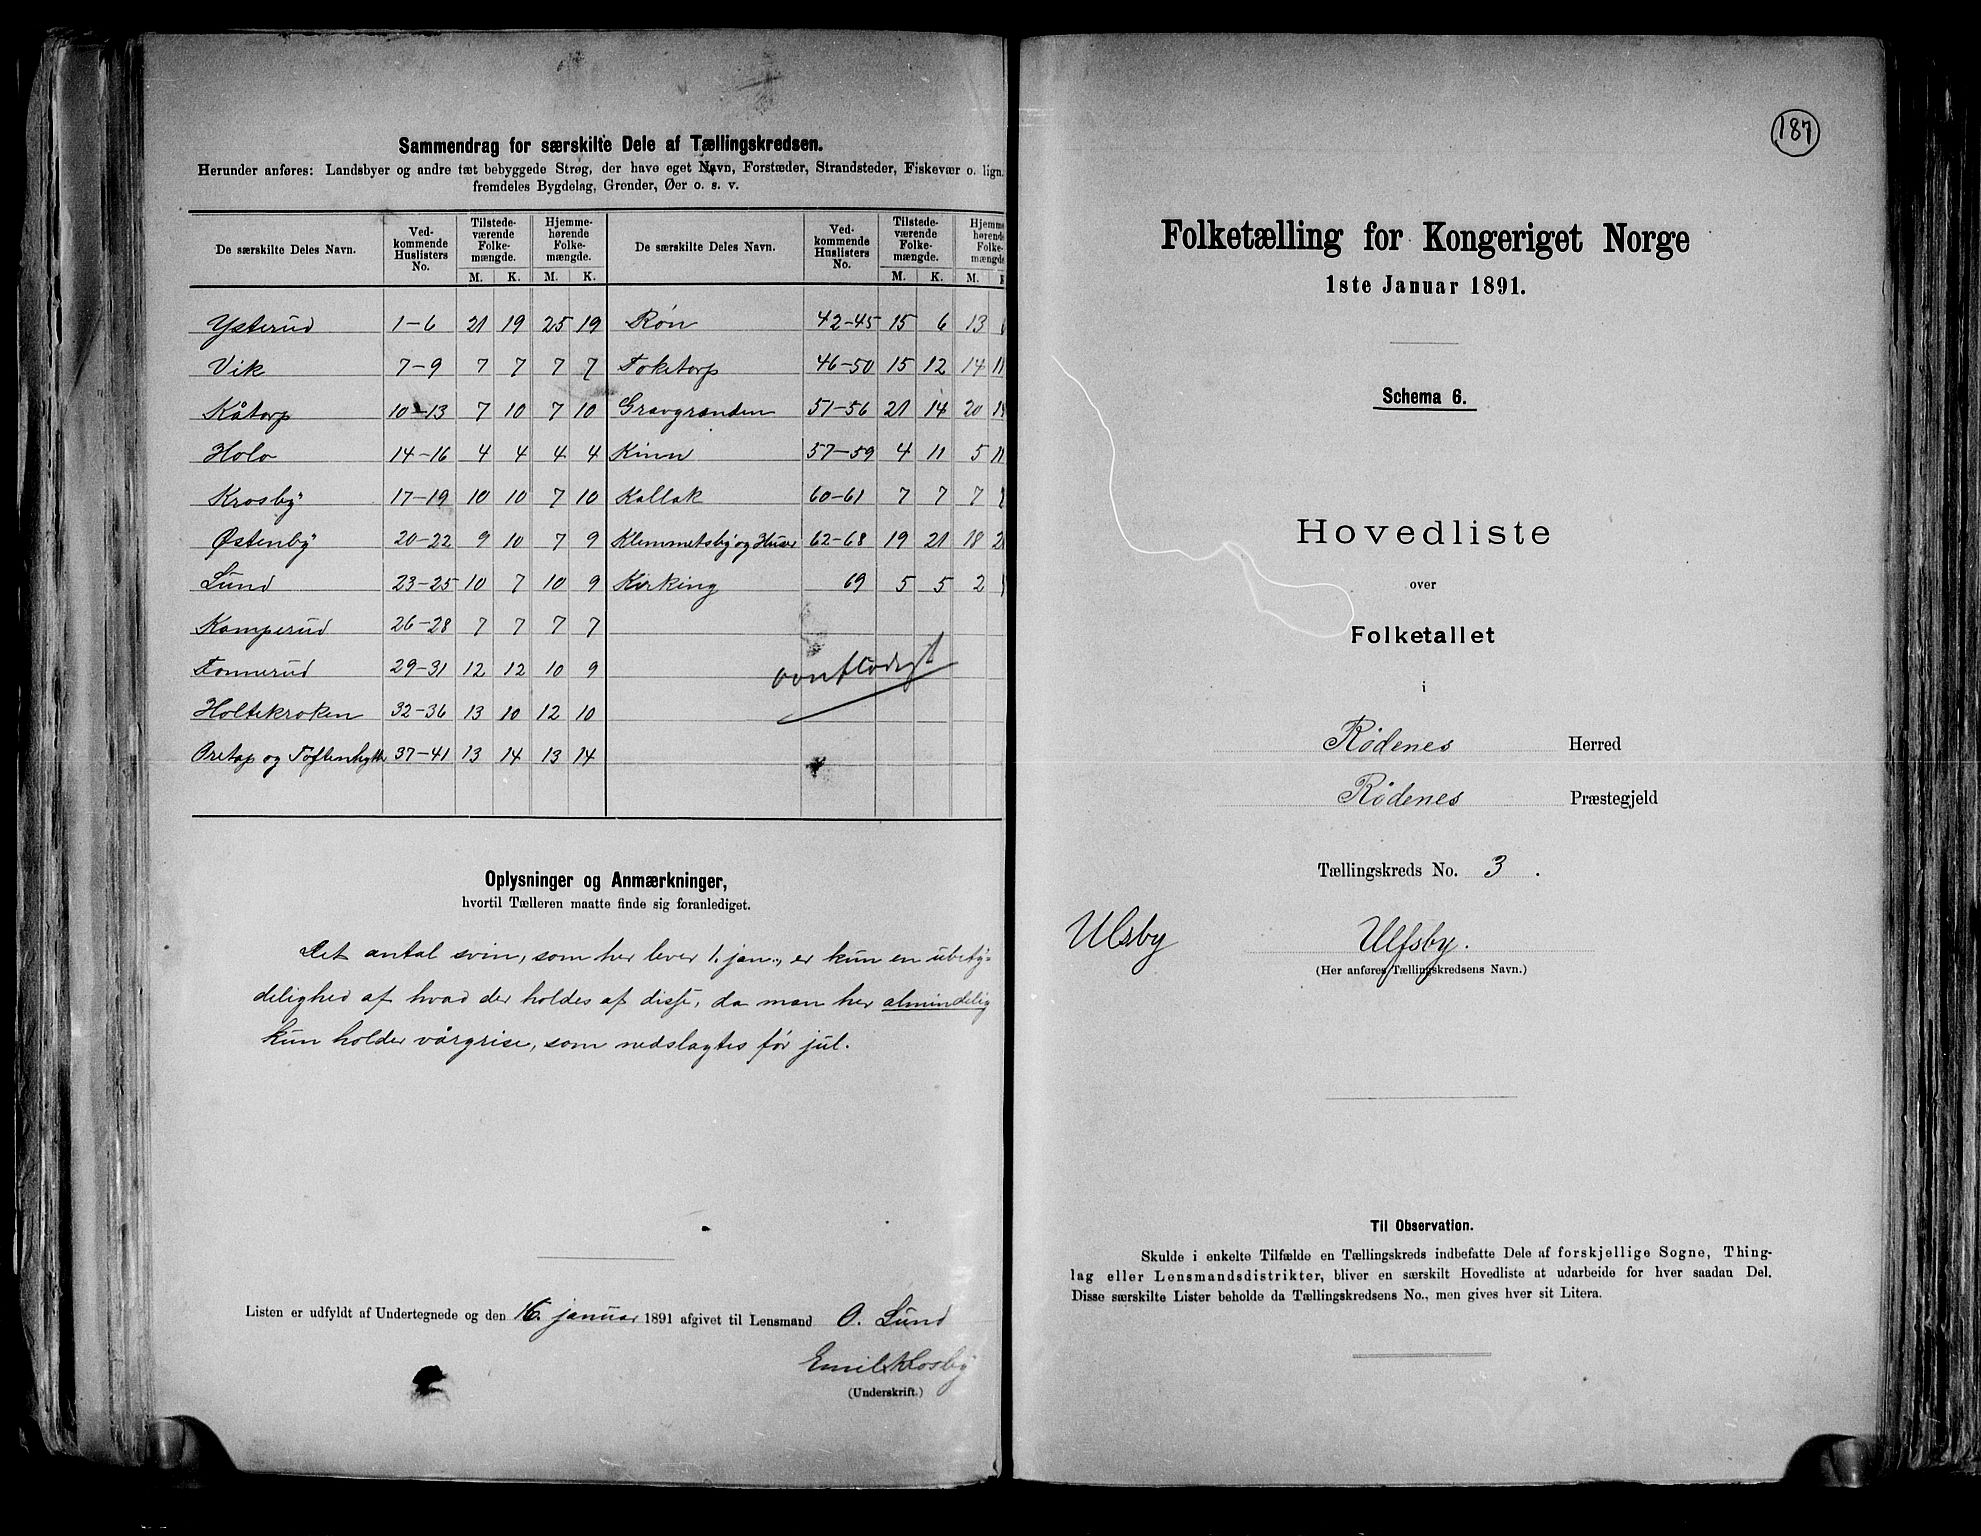 Sammendrag for særskilte Dele af Tællingskredsen.
Herunder anføres: Landsbyer og andre tæt bebyggede Strøg, der have eget Navn, Forstæder, Strandsteder, Fiskevær o. lign.
fremdeles Bygdelag, Grender, Øer o. s. v.
De særskilte Deles Navn. | Vedkommende Huslisters No. | Tilstedeværende Folkemængde. M. K. | Hjemmehørende Folkemængde. M. K. | De særskilte Deles Navn. | Vedkommende Huslisters No. | Tilstedeværende Folkemængde. M. K. | Hjemme hørende Folkemængde M.
Ysterud 1-6 21 19 25 19 Røn 42-45 15 6 13
Vik 7-9 7 7 7 7 Toketorp 46-50 15 12 14 11
Kåtorp 10-13 7 10 7 10 Gravgrænden 51-56 21 14 20
Holo 14-16 4 4 4 4 Kinn 57-59 4 11 5 11
Krosby 17-19 10 10 7 10 Kallak 60-61 7 7 7
Østenby 20-22 9 10 7 9 Klemmetsby og Huser 62-68 19 21 18
Lund 23-25 10 7 10 9 Kirking 69 5 5 2
Kamperud 26-28 7 7 7 7
Tonnerud 29-31 12 12 10 9
Holtekroken 32-36 13 10 12 10
Oretop og Toftenhytte 37-41 13 14 13 14
Oplysninger og Anmærkninger,
hvortil Tælleren maatte finde sig foranlediget.
Det antal svin, som her lever 1. jan., er kun en ubety-
delighed af hvad der holdes af disse, da man her almindelig
kun holder vårgrise, som nedslagtes før jul.
Listen er udfyldt af Undertegnede og den 16. januar 1891 afgivet til Lensmand O. Lund
Emil Klosby
(Underskrift.)
187
Folketælling for Kongeriget Norge
1ste Januar 1891.
Schema 6.
Hovedliste
over
Folketallet
i
Rødenes Herred
Rødenes Præstegjeld
Tællingskreds No. 3.
Ulsby Ulfsby.
(Her anføres Tællingskredsens Navn.)
Til Observation.
Skulde i enkelte Tilfælde en Tællingskreds indbefatte Dele af forskjellige Sogne, Thing-
lag eller Lensmandsdistrikter, bliver en særskilt Hovedliste at udarbeide for hver saadan Del.
Disse særskilte Lister beholde da Tællingskredsens No., men gives hver sit Litera.